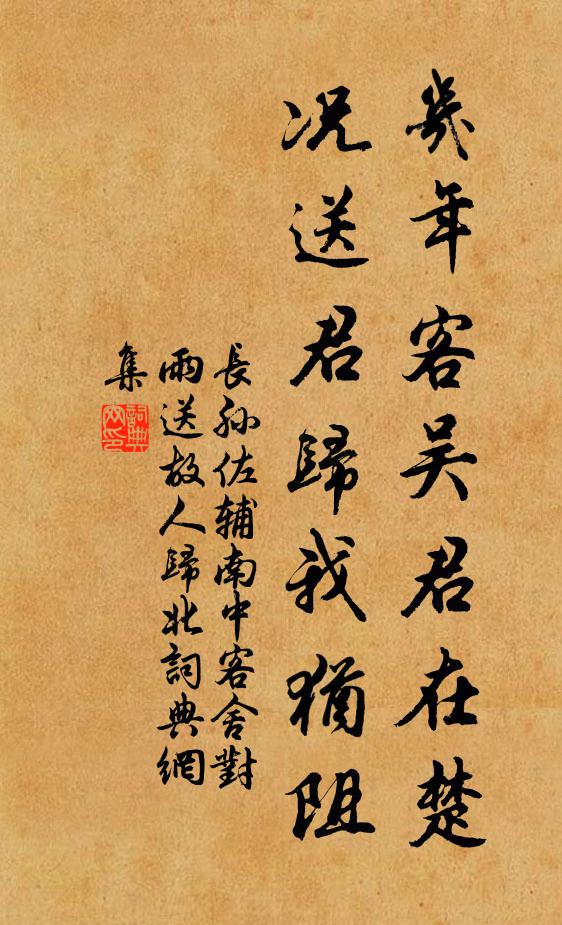 幾年客吴君在楚
况送君歸我猶阻
長孙佐辅南中客舍對
雨送故人歸北詞典網
集